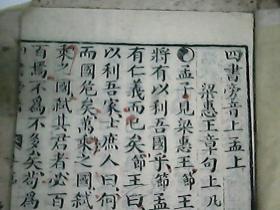 四書旁音上孟上
梁惠王章句上凡
孟子見梁惠王節王
將有以利吾國乎節孟
有仁義而已矣節王曰
以利吾家士庶人曰何
而國危矣萬乘之
乘之國弒其君者必百
百焉不為不多矣苟為